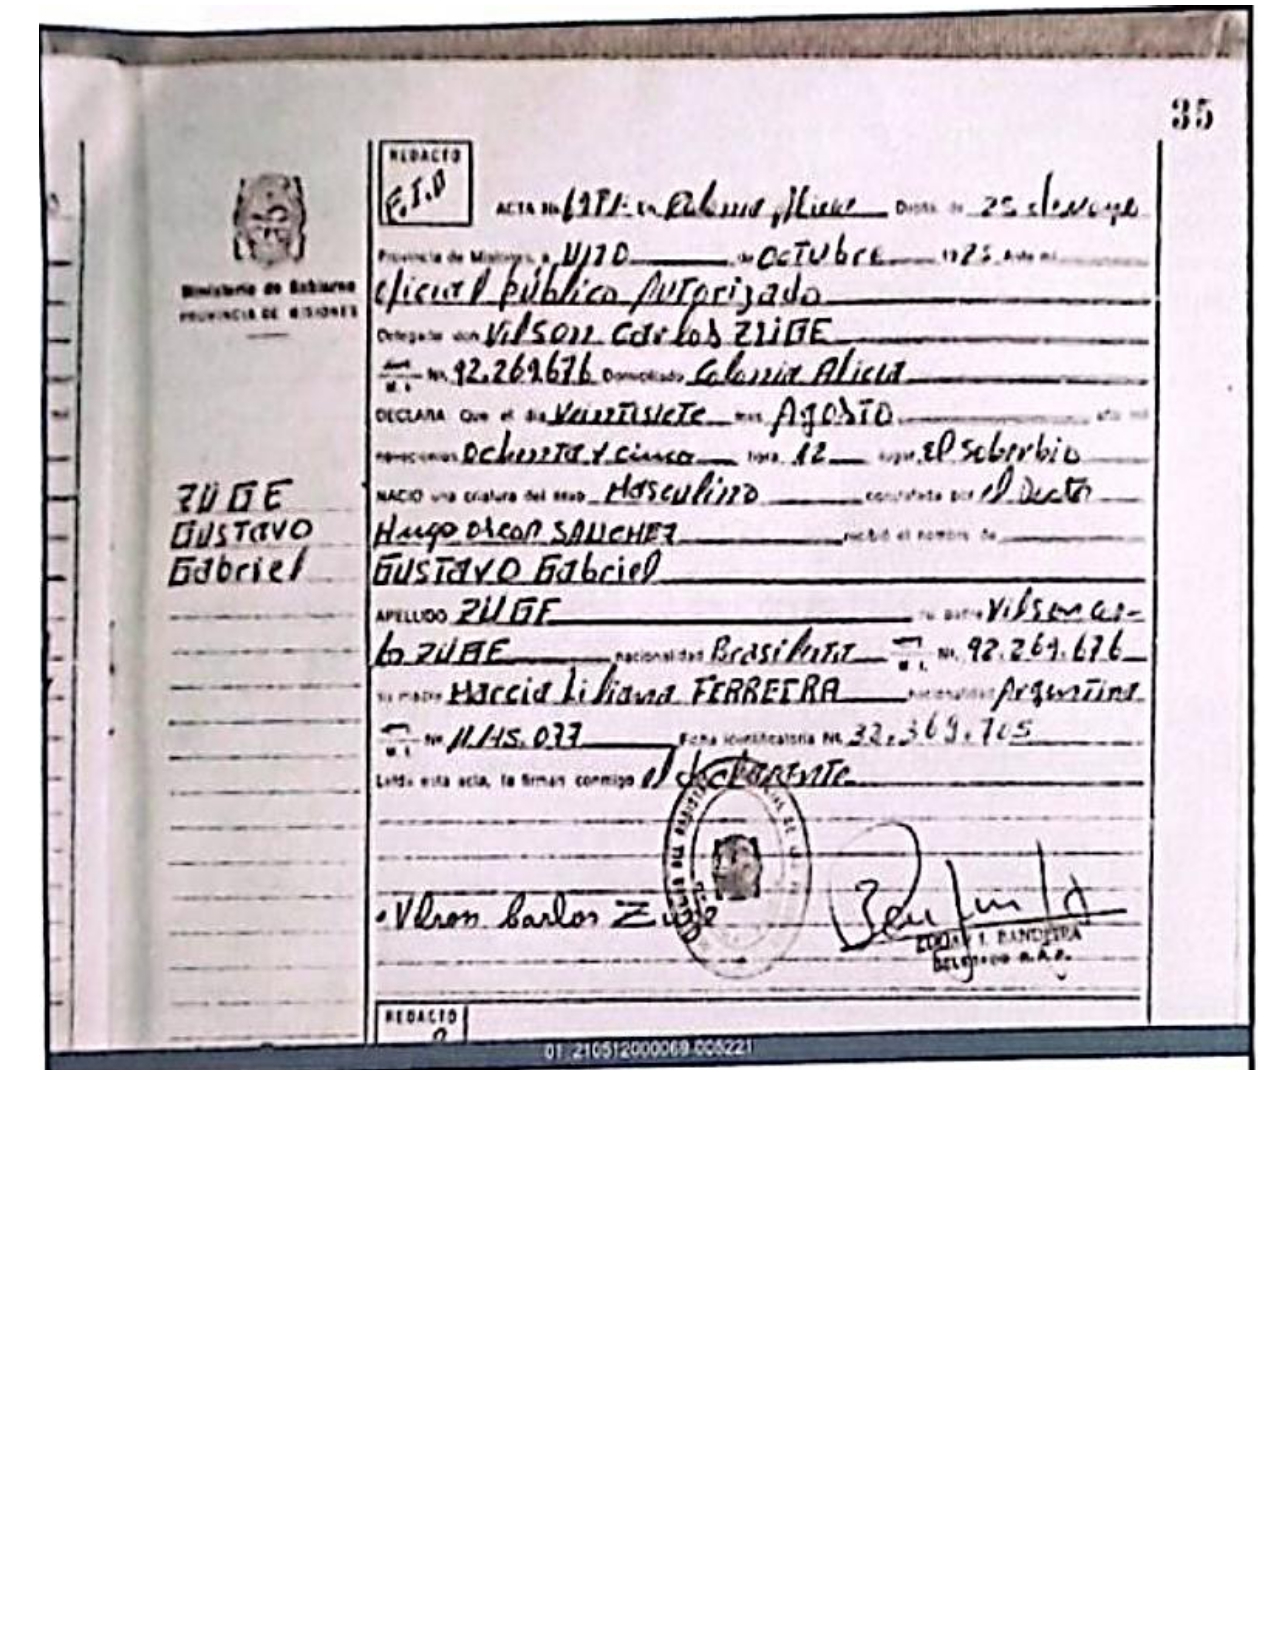 35
REDACTO
E.I.B
ACTA No 69T1 En Colonia Alicia Depto. de 25 de Mayo
Ministerio de Gobierno
PROVINCIA DE MISIONES
Provincia de Misiones, a UNO de OCTUbre 1985 Ante mí
oficial público Autorizado
Delegado don Vilson Carlos ZUGE
M. I. No. 92.269.676 Domiciliado Colonia Alicia
DECLARA Que el día Veintisiete mes Agosto año mil
novecientos Ochenta y cinco hora 12 lugar El Soberbio
NACIO una criatura del sexo Masculino constatada por el Doctor
Hugo Oscar SANCHEZ recibió el nombre de
GUSTAVO Gabriel
ZUGE
GUSTAVO
Gabriel
APELLIDO ZUGE su padre Vilson Car-
lo ZUGE nacionalidad Brasilera M. I. No. 92.269.676
su madre Marcia Liliana FERREIRA nacionalidad Argentina
M. I. No 11.145.077 Ficha identificatoria No. 32.369.705
Leída esta acta, la firman conmigo el declarante
Vilson Carlos Zuge
BANDEIRA
DELEGADO R.A.P.
REDACTO
01_210512000069-005221